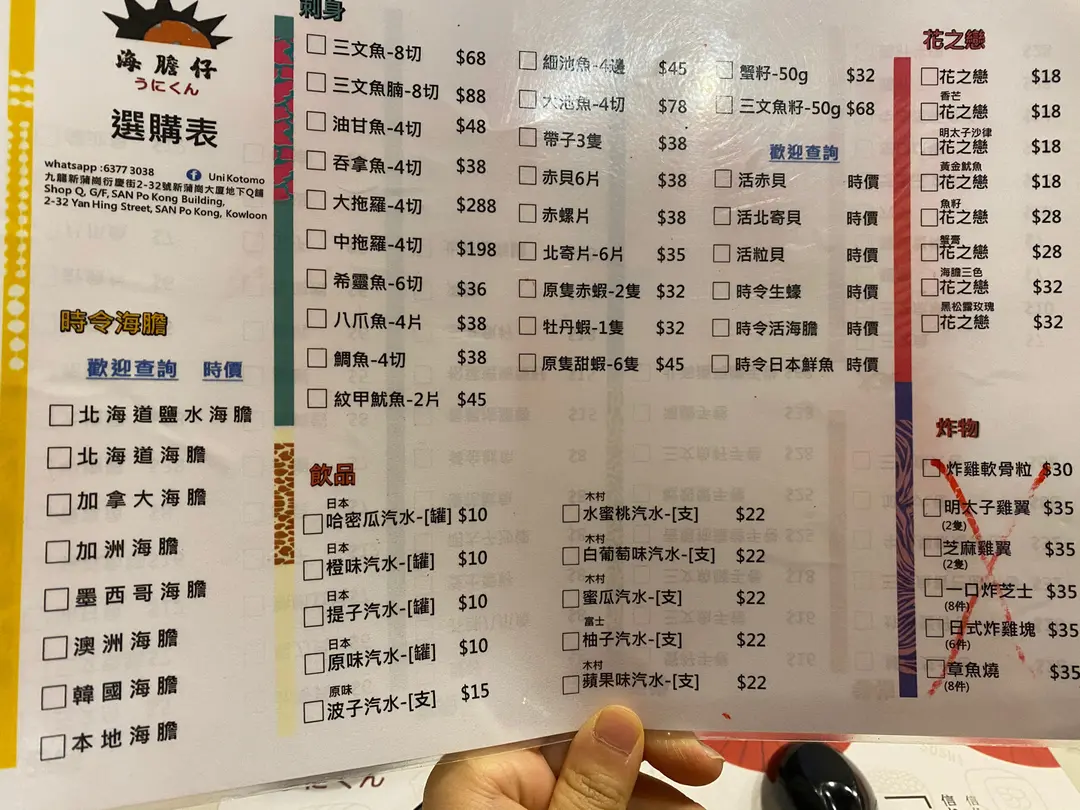 海膽仔
うにくん
選購表
whatsapp :6377 3038
Uni Kotomo
九龍新蒲崗衍慶街2-32號新蒲崗大廈地下Q鋪
Shop Q, G/F, SAN Po Kong Building,
2-32 Yan Hing Street, SAN Po Kong, Kowloon
時令海膽
歡迎查詢 時價
北海道鹽水海膽
北海道海膽
加拿大海膽
加洲海膽
墨西哥海膽
澳洲海膽
韓國海膽
本地海膽
刺身
三文魚-8切 $68
三文魚腩-8切 $88
油甘魚-4切 $48
吞拿魚-4切 $38
大拖羅-4切 $288
中拖羅-4切 $198
希靈魚-6切 $36
八爪魚-4片 $38
鯛魚-4切 $38
紋甲魷魚-2片 $45
細池魚-4邊 $45
大池魚-4切 $78
帶子3隻 $38
赤貝6片 $38
赤螺片 $38
北寄片-6片 $35
原隻赤蝦-2隻 $32
牡丹蝦-1隻 $32
原隻甜蝦-6隻 $45
蟹籽-50g $32
三文魚籽-50g $68
歡迎查詢
活赤貝 時價
活北寄貝 時價
活粒貝 時價
時令生蠔 時價
時令活海膽 時價
時令日本鮮魚 時價
飲品
日本
哈密瓜汽水-[罐] $10
日本
橙味汽水-[罐] $10
日本
提子汽水-[罐] $10
日本
原味汽水-[罐] $10
原味
波子汽水-[支] $15
木村
水蜜桃汽水-[支] $22
木村
白葡萄味汽水-[支] $22
木村
蜜瓜汽水-[支] $22
富士
柚子汽水-[支] $22
木村
蘋果味汽水-[支] $22
花之戀
花之戀 $18
香芒
花之戀 $18
明太子沙律
花之戀 $18
黃金魷魚
花之戀 $18
魚籽
花之戀 $28
蟹膏
花之戀 $28
海膽三色
花之戀 $32
黑松露玫瑰
花之戀 $32
炸物
炸雞軟骨粒 $30
明太子雞翼 $35
(2隻)
芝麻雞翼 $35
(2隻)
一口炸芝士 $35
(8件)
日式炸雞塊 $35
(6件)
章魚燒 $35
(8件)
にくん